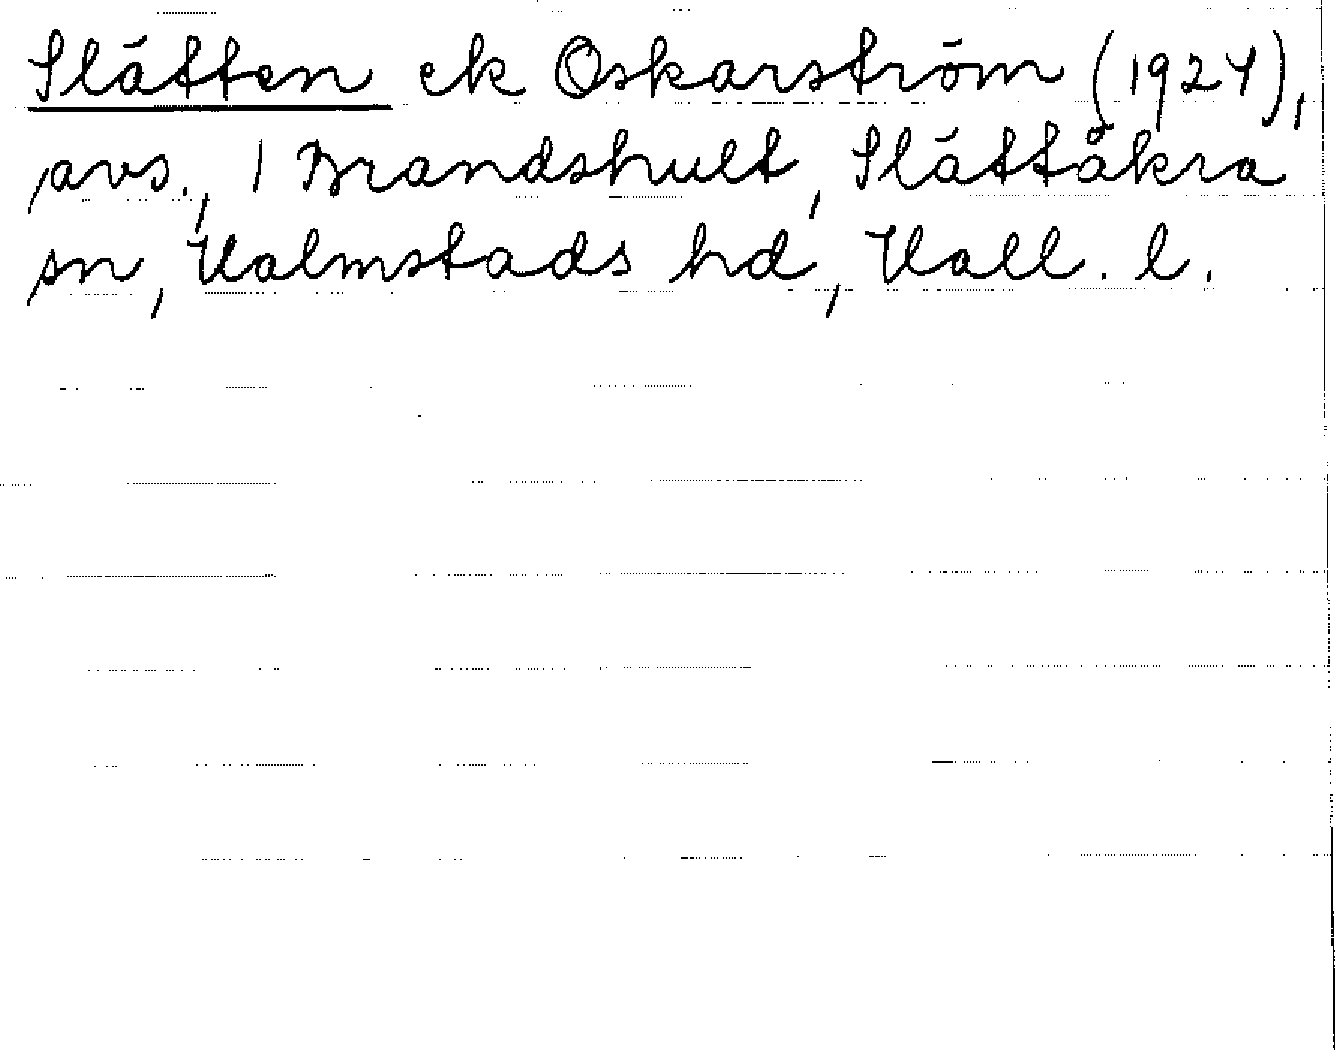 Slätten ek Oskarström (1924),
avs., 1 Brandshult, Slättåkra
sn, Halmstads hd, Hall. l.